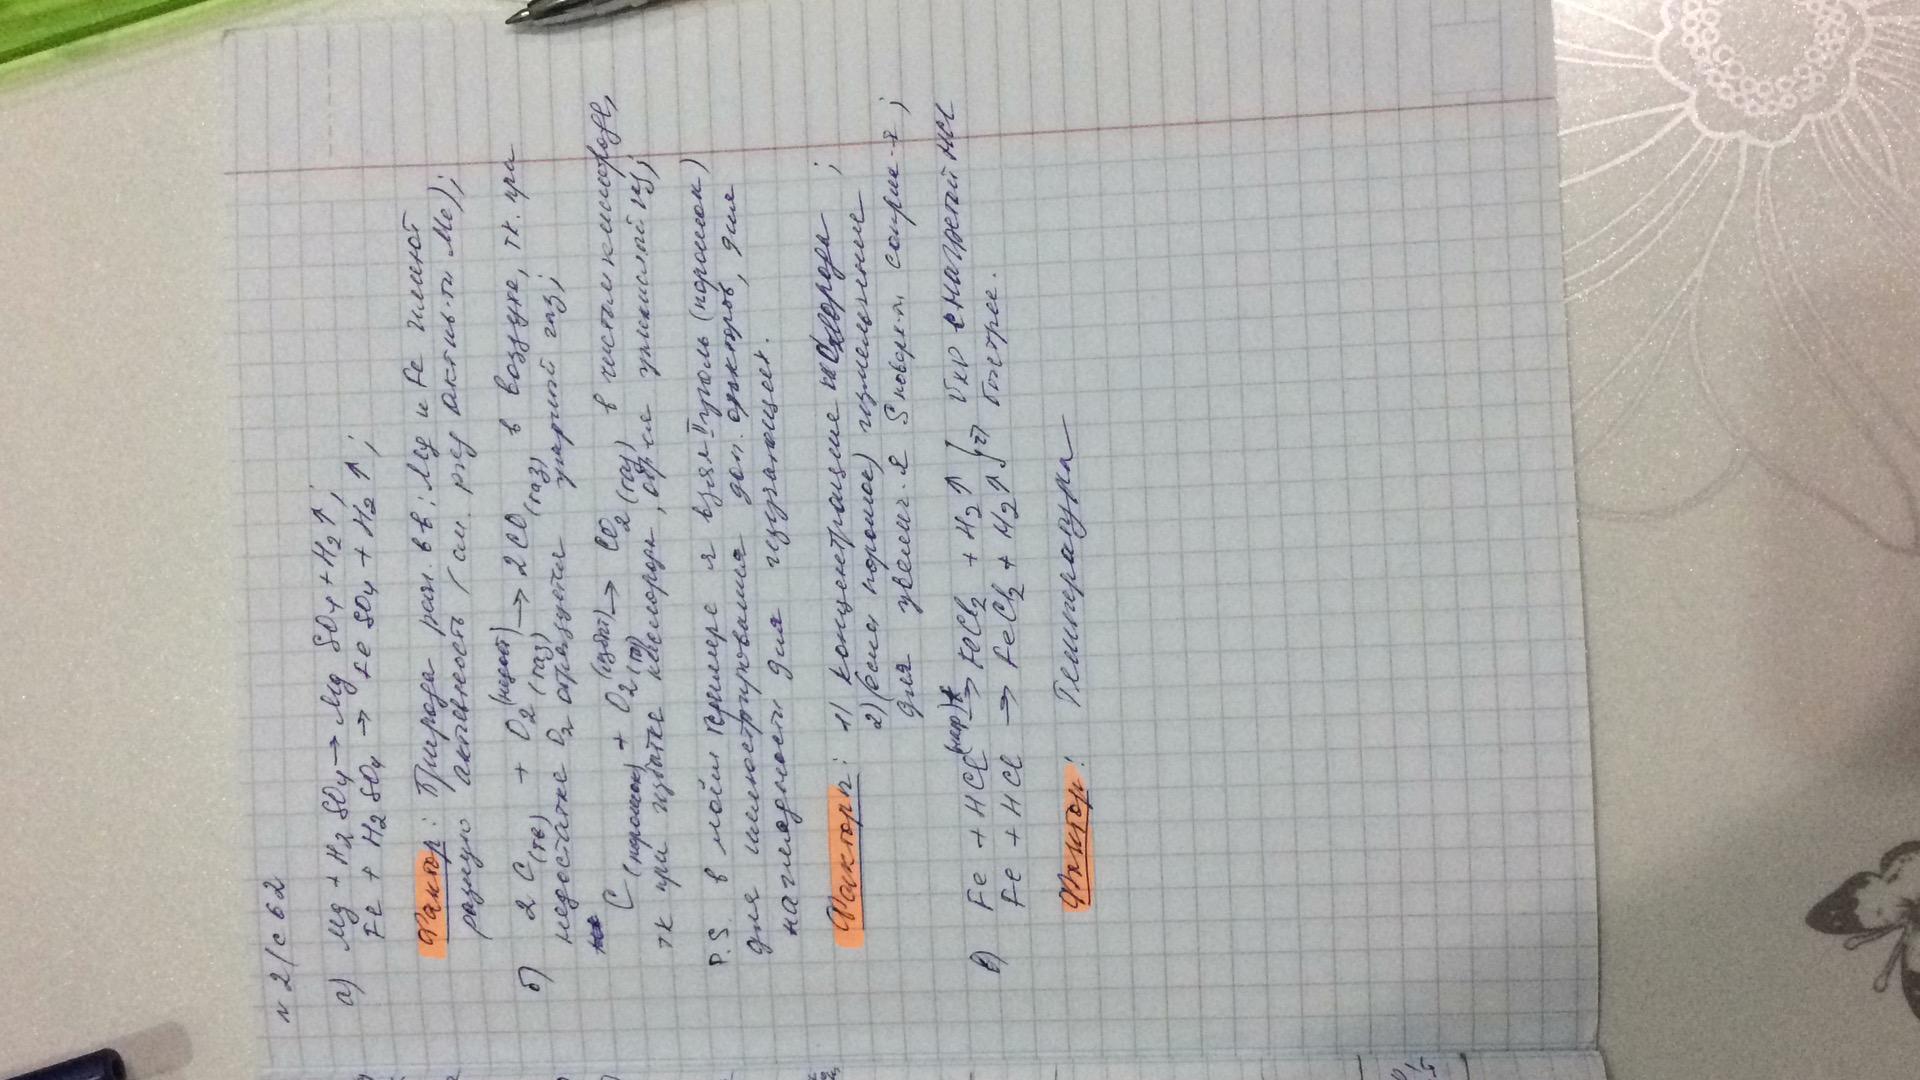 N 2/с 62
а) Mg + H2SO4 → MgSO4 + H2↑;
Fe + H2SO4 → FeSO4 + H2↑;
Фактор: Природа реаг. в-в: Mg и Fe имеют
разную активность (см. ряд актив-ти Me);
б) 2C(тв) + O2(газ)(недост) → 2CO(газ) в воздухе, тк. при
недостатке O2 образуется угарный газ;
C(порошок) + O2(газ)(избыт) → CO2(газ) в чистом кислороде,
тк при избытке кислорода, обр-ся углекислый газ;
P.S. в моём примере я взял уголь (порошок)
для иллюстрирования доп. факторов, для
наглядности для изучающих.
Факторы: 1) Концентрация кислорода;
2) (если порошок) измельчение
для увелич-я S поверх-ти соприк-я;
в) Fe + HCl(нагр) → FeCl2 + H2↑
Fe + HCl → FeCl2 + H2↑ Vхр с нагретой HCl
быстрее.
Фактор: Температура